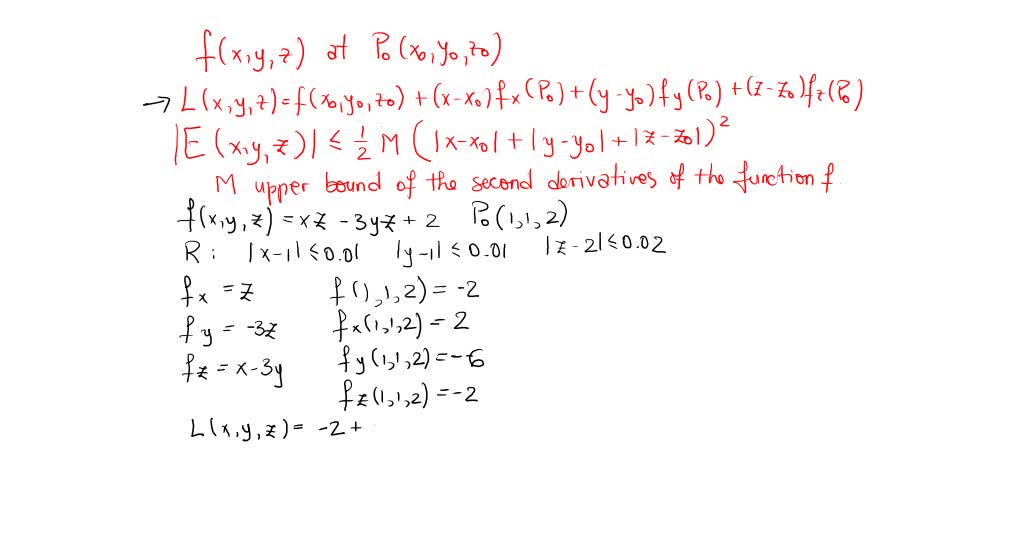 f(x,y,z) at P₀(x₀,y₀,z₀)
→ L(x,y,z)=f(x₀,y₀,z₀)+(x-x₀)fx(P₀)+(y-y₀)fy(P₀)+(z-z₀)fz(P₀)
|E(x,y,z)| ≤ 1/2 M (|x-x₀|+|y-y₀|+|z-z₀|)²
M upper bound of the second derivatives of the function f.
f(x,y,z)=xz-3yz+2 P₀(1,1,2)
R: |x-1|≤0.01 |y-1|≤0.01 |z-2|≤0.02
fx = z f(1,1,2)=-2
fy = -3z fx(1,1,2)=2
fz = x-3y fy(1,1,2)=-6
fz(1,1,2)=-2
L(x,y,z)= -2+